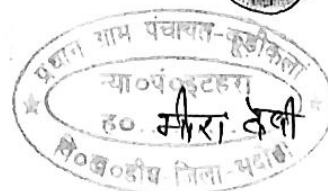 प्रधान ग्राम पंचायत-कूड़ीकला
न्या०पं०इटहरा
ह० मीरा देवी
वि०ख०डीघ जिला-भदोही